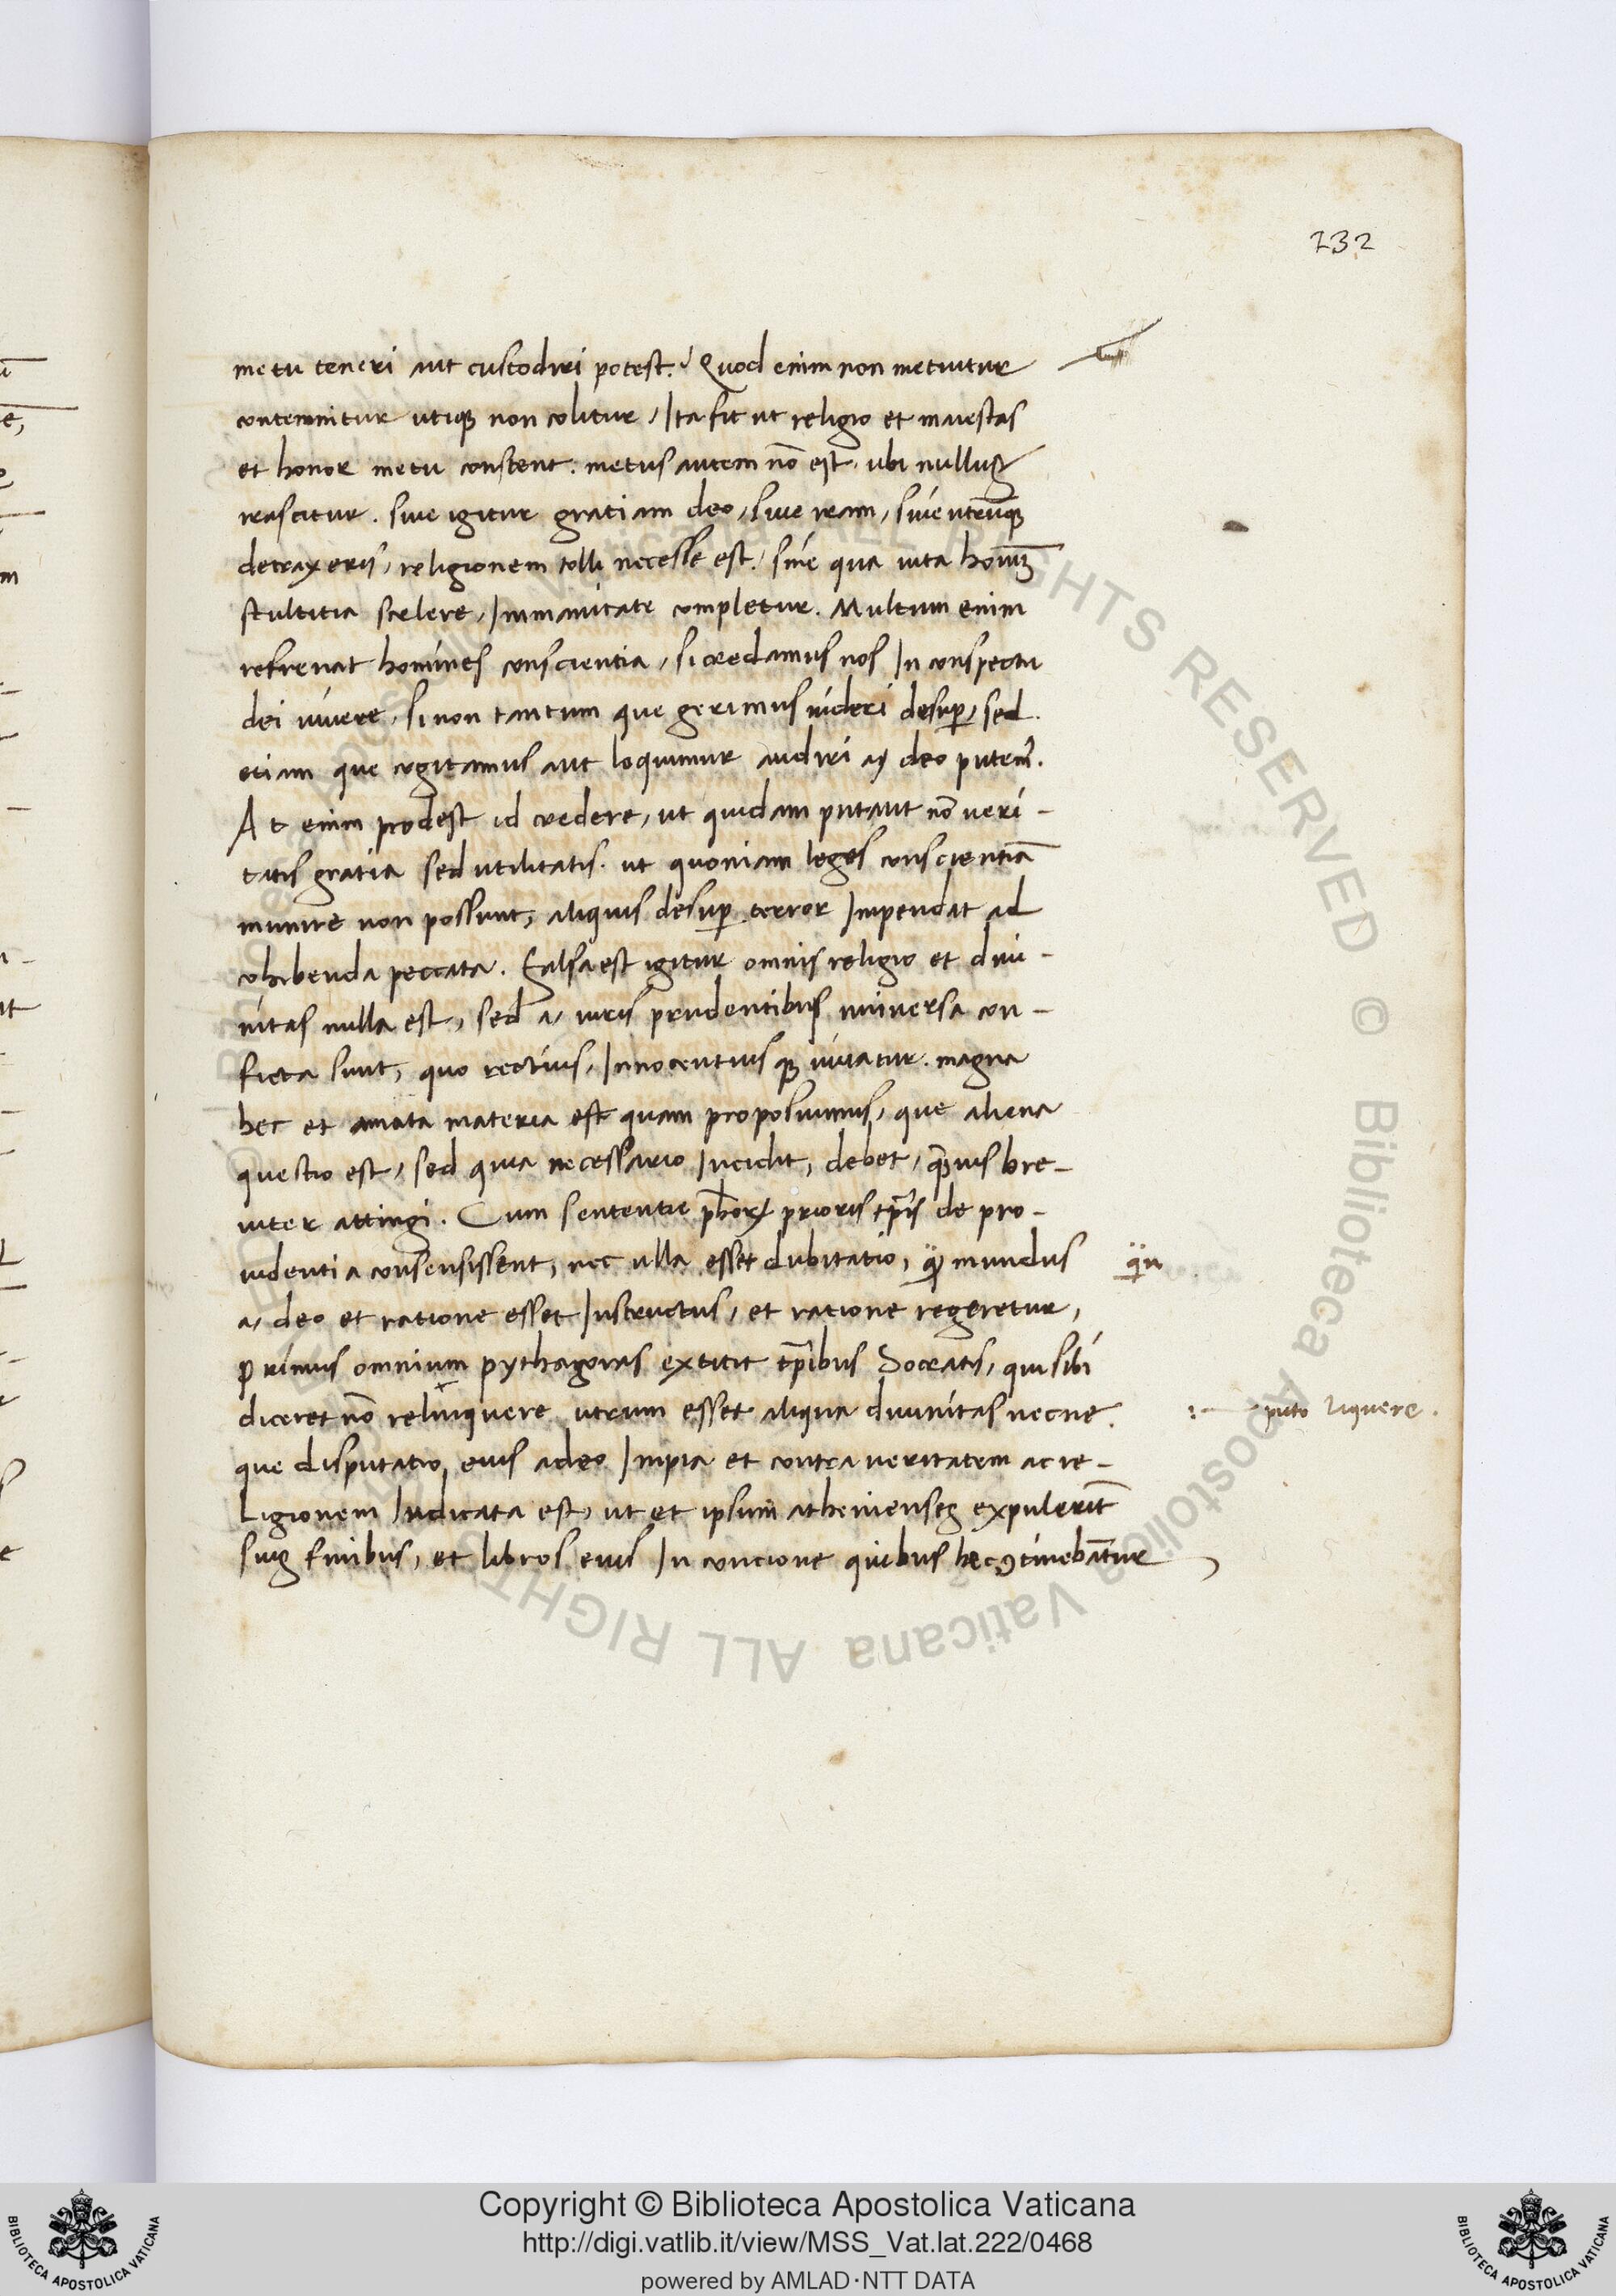 232
metu teneri aut custodiri potest? Quod enim non metuitur
contemnitur utiqȝ non colitur, Ita fit ut religio et maiestas
et honor metu constent. metus autem nō est, ubi nullus
irascitur. sive igitur gratiam deo, sive iram, sive utrūqȝ
detraxeris, religionem tolli necesse est. sine qua vita homīū
stultitia scelere, Immanitate completur. Multum enim
refrenat homines conscientia, si credamus nos In conspectu
dei vivere, si non tantum que gerimus videri desuꝑ, sed
etiam que cogitamus aut loquimur audiri a, deo putem̄.
At enim prodest id credere, ut quidam putant nō veri-
tatis gratia sed utilitatis. ut quoniam leges conscientiā
munire non possunt, aliquis desuꝑ terror Impendat ad
cohibenda peccata. Falsa est igitur omnis religio et divi-
nitas nulla est, sed a, viris prudentibus universa con-
ficta sunt, quo rectius, Innocentiusqȝ vivatur. magna
hec et amota materia est quam proposuimus, que aliena
questio est, sed quia necessario Incidit, debet, q̄mvis bre-
viter attingi. Cum sententie pħorꝝ prioris tꝑis de pro-
videntia consensissent, nec ulla esset dubitatio, qđ mundus
q̄in
a, deo et ratione esset Instructus, et ratione regeretur,
Primus omnium pythagoras extitit tꝑibus Socratis, qui sibi
diceret nō relinquere utrum esset aliqua divinitas necne.
:— puto liquere.
que disputatio eius adeo Impia et contra veritatem ac re-
Ligionem Iudicata est, ut et ipsum athenienses expulerīt
suis finibus, et libros eius In concione quibus hec ꝯtinebāntur
Copyright © Biblioteca Apostolica Vaticana
http://digi.vatlib.it/view/MSS_Vat.lat.222/0468
powered by AMLAD·NTT DATA
BIBLIOTECA APOSTOLICA VATICANA
BIBLIOTECA APOSTOLICA VATICANA